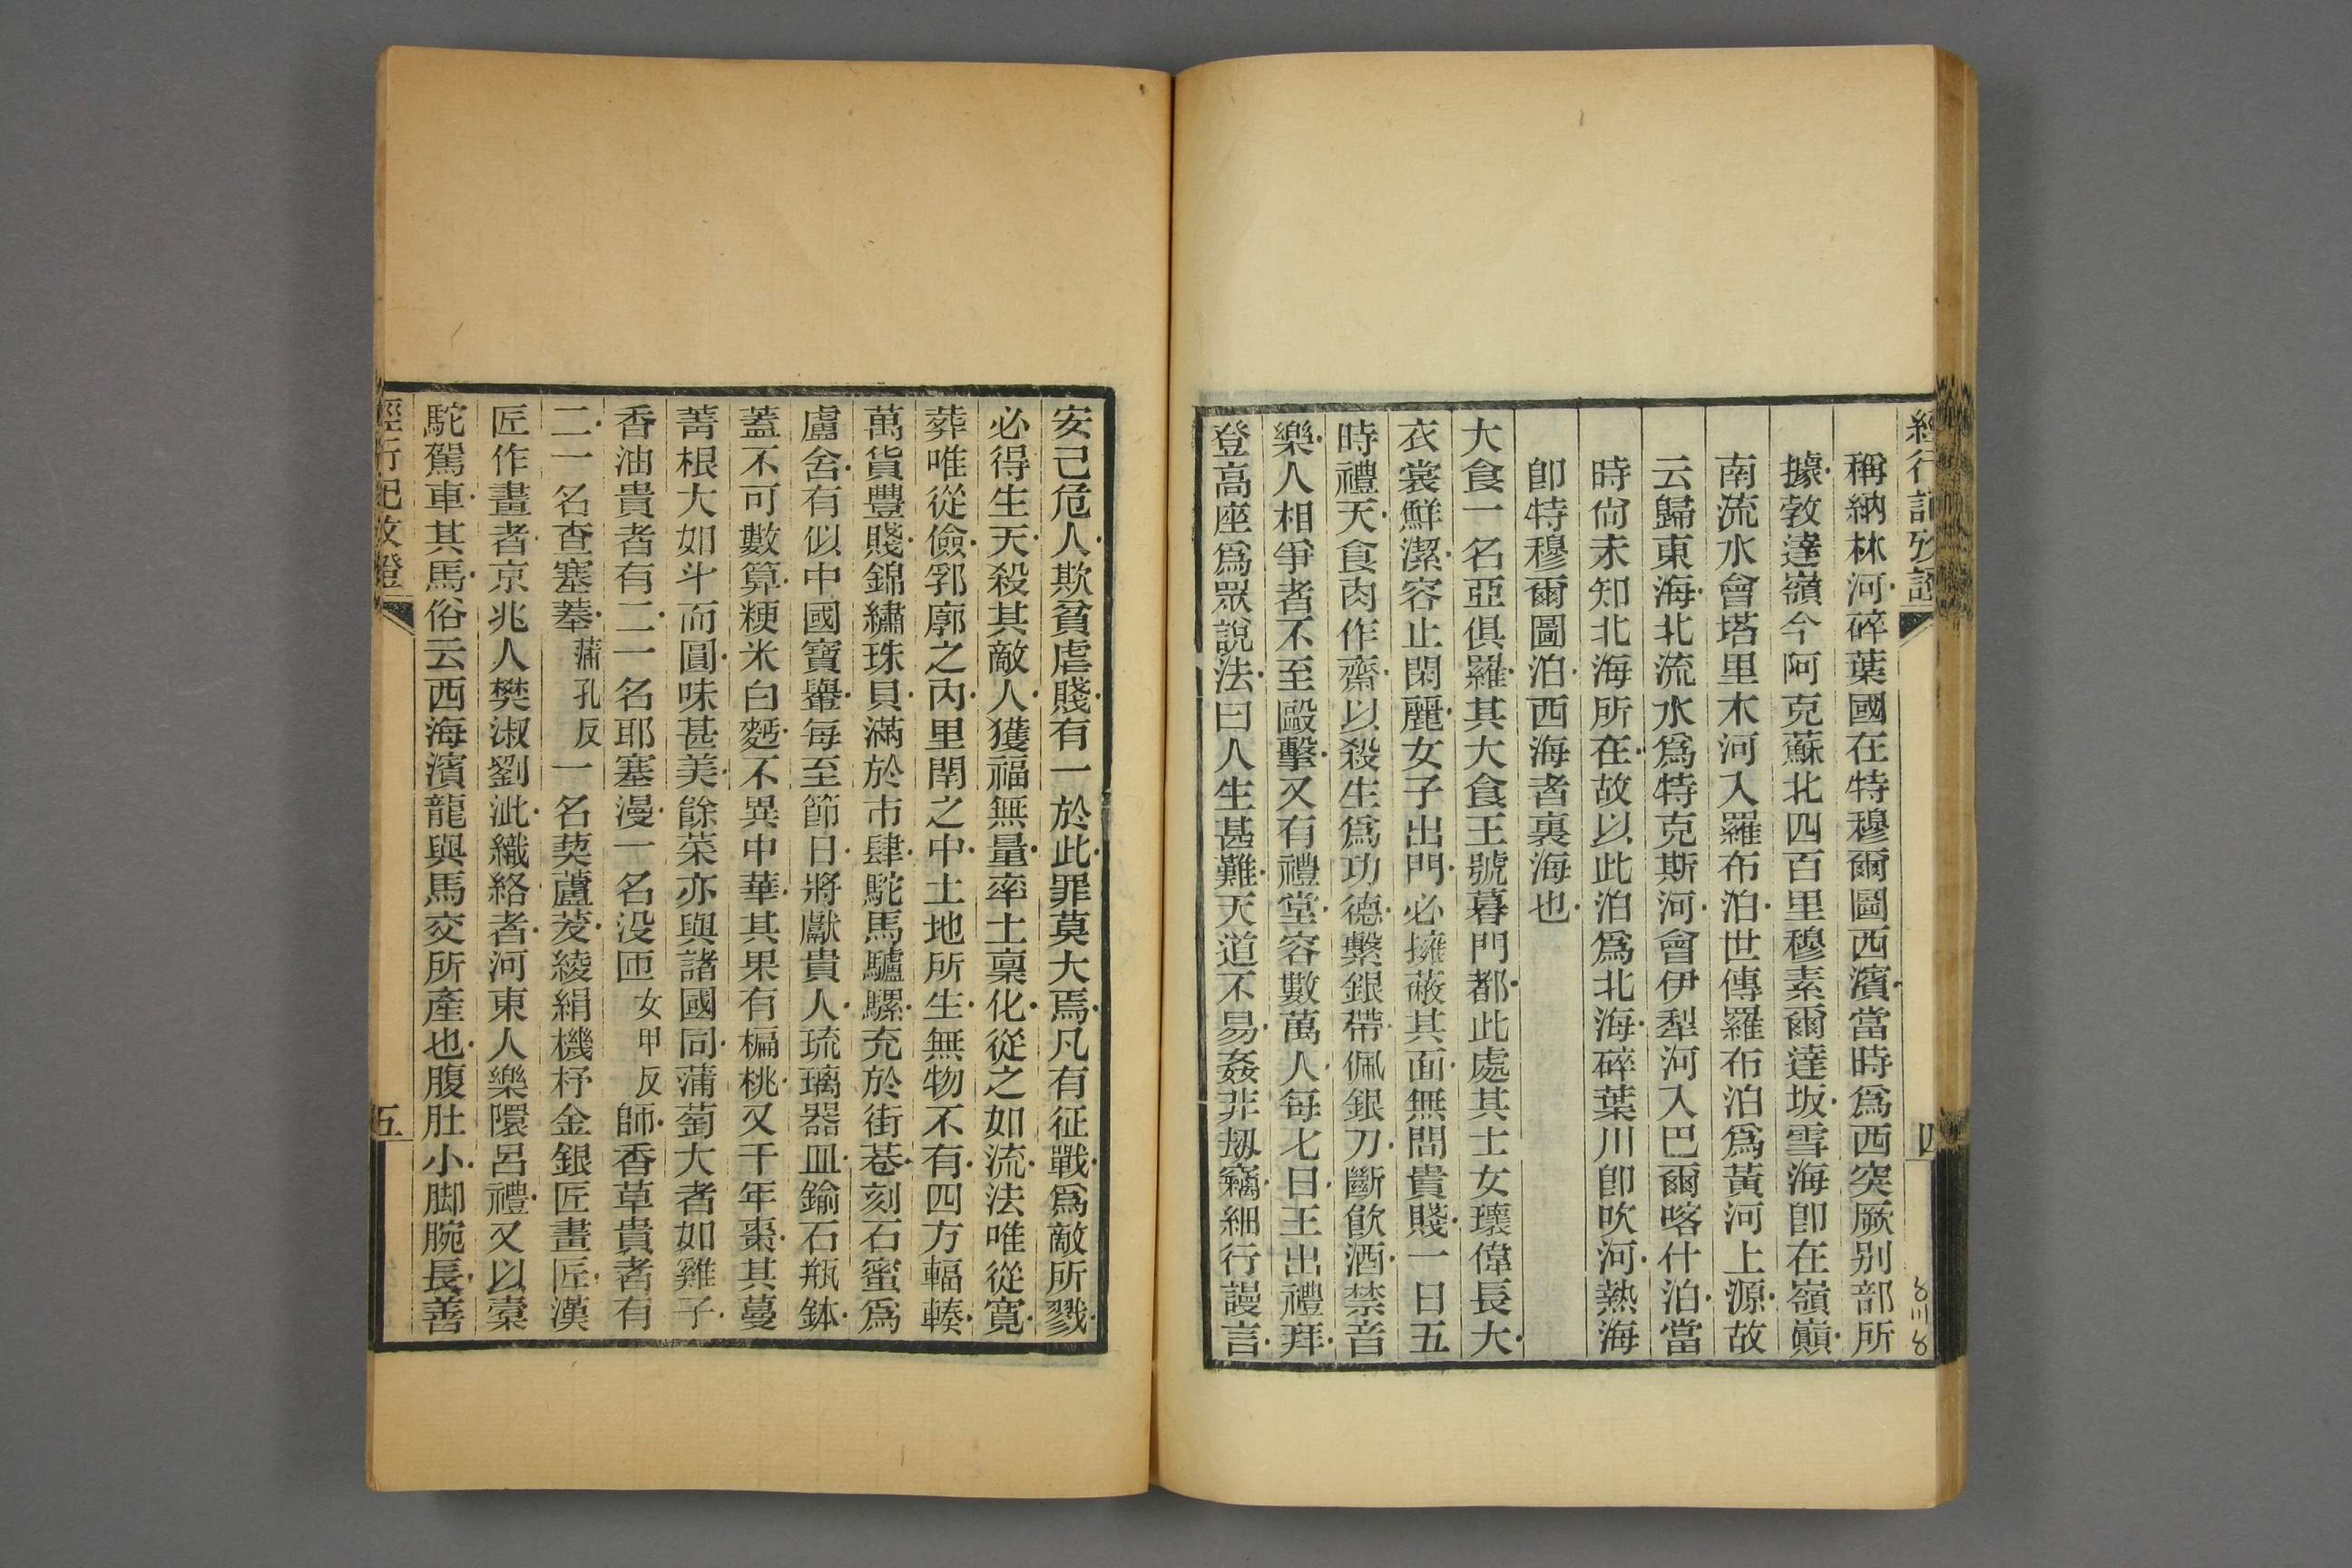 經行記攷證
四
稱納林河碎葉國在特穆爾圖西濱當時爲西突厥別部所
據敦達嶺今阿克蘇北四百里穆素爾達坂雪海卽在嶺巔
南流水會塔里木河入羅布泊世傳羅布泊爲黃河上源故
云歸東海北流水爲特克斯河會伊犁河入巴爾喀什泊當
時尙未知北海所在故以此泊爲北海碎葉川卽吹河熱海
卽特穆爾圖泊西海者裏海也
大食一名亞俱羅其大食王號暮門都此處其士女瓌偉長大
衣裳鮮潔容止閑麗女子出門必擁蔽其面無問貴賤一日五
時禮天食肉作齋以殺生爲功德繫銀帶佩銀刀斷飮酒禁音
樂人相爭者不至毆擊又有禮堂容數萬人每七日王出禮拜
登高座爲眾說法曰人生甚難天道不易姦非刼竊細行謾言
安己危人欺貧虐賤有一於此罪莫大焉凡有征戰爲敵所戮
必得生天殺其敵人獲福無量率土稟化從之如流法唯從寬
葬唯從儉郛廓之內里閈之中土地所生無物不有四方輻輳
萬貨豐賤錦繡珠貝滿於市肆駝馬驢騾充於街巷刻石蜜爲
盧舍有似中國寶轝每至節日將獻貴人琉璃器皿鍮石瓶鉢
蓋不可數算粳米白麪不異中華其果有楄桃又千年棗其蔓
菁根大如斗而圓味甚美餘菜亦與諸國同蒲萄大者如雞子
香油貴者有二一名耶塞漫一名没𠯗女甲反師香草貴者有
二一名查塞菶蒲孔反一名葜蘆茇綾絹機杼金銀匠畫匠漢
匠作畫者京兆人樊淑劉泚織絡者河東人樂隈呂禮又以橐
駝駕車其馬俗云西海濱龍與馬交所產也腹肚小脚腕長善
經行記攷證
五